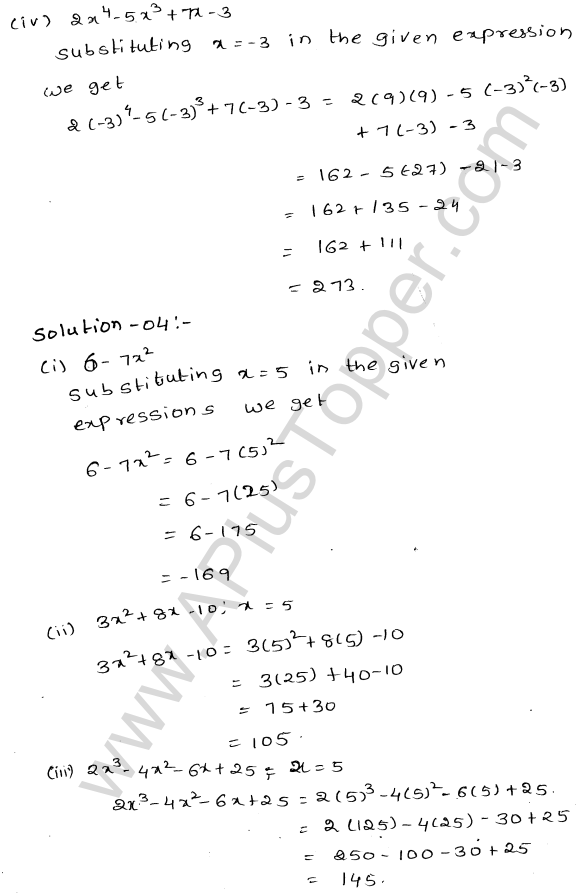 (iv) 2x⁴-5x³+7x-3
substituting x=-3 in the given expression
we get
2(-3)⁴-5(-3)³+7(-3)-3 = 2(9)(9)-5(-3)²(-3)
+7(-3)-3
= 162-5(-27)-21-3
= 162+135-24
= 162+111
= 273.
Solution-04:-
(i) 6-7x²
substituting x=5 in the given
expressions we get
6-7x² = 6-7(5)²
= 6-7(25)
= 6-175
= -169
(ii) 3x²+8x-10; x=5
3x²+8x-10 = 3(5)²+8(5)-10
= 3(25)+40-10
= 75+30
= 105.
(iii) 2x³-4x²-6x+25; x=5
2x³-4x²-6x+25 = 2(5)³-4(5)²-6(5)+25.
= 2(125)-4(25)-30+25
= 250-100-30+25
= 145.
www.APlusTopper.com